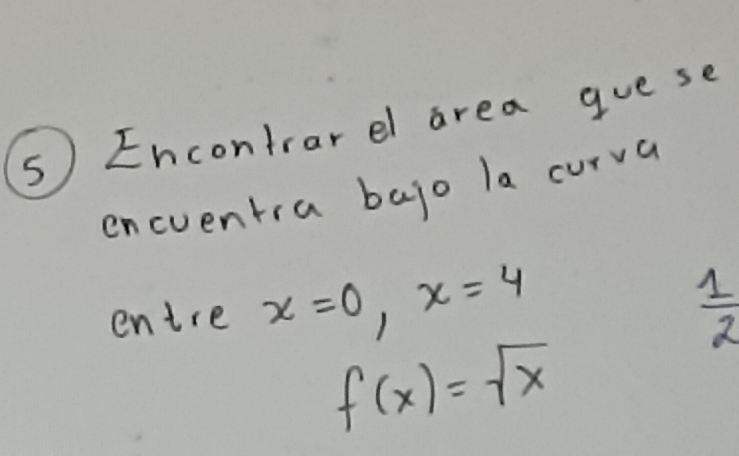 5 Encontrar el área que se
encuentra bajo la curva
entre x=0, x=4
1/2
f(x)=√x